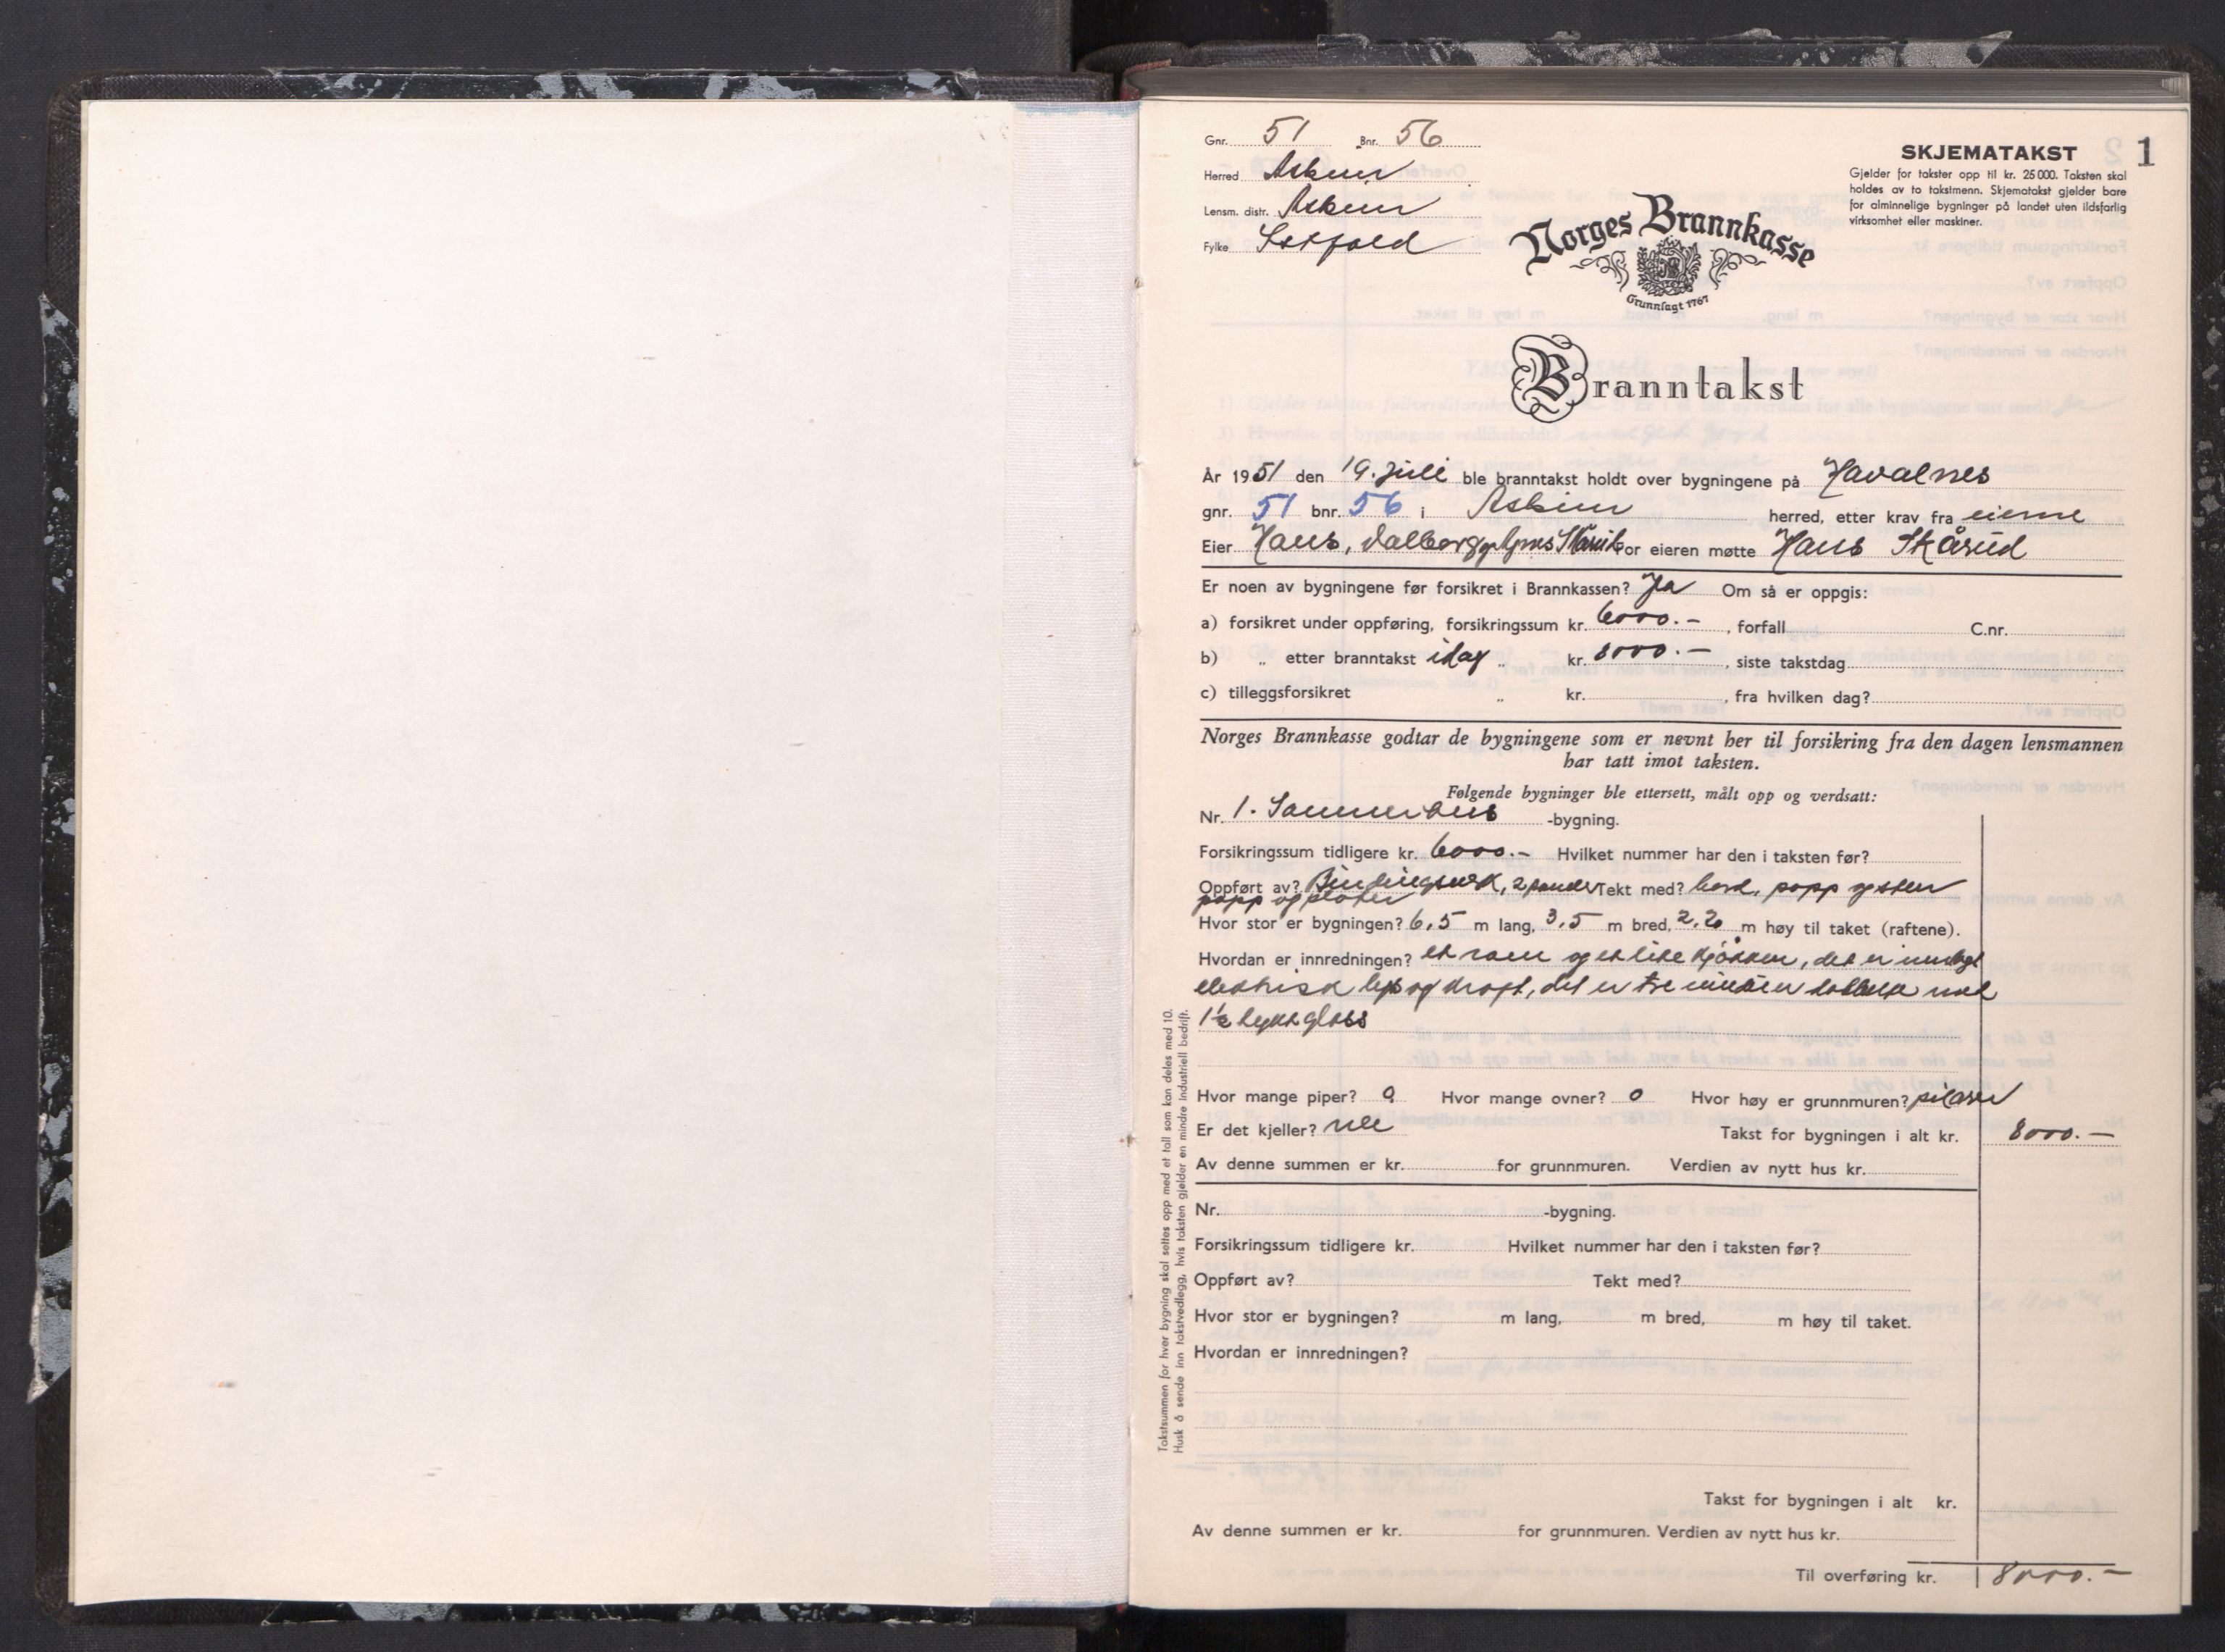 Gnr. 51 Bnr. 56
Herred Askim
Lensm. distr. Askim
Fylke Østfold
SKJEMATAKST 1
Gjelder for takster opp til kr. 25 000. Taksten skal
holdes av to takstmenn. Skjematakst gjelder bare
for alminnelige bygninger på landet uten ildsfarlig
virksomhet eller maskiner.
Norges Brannkasse
Grunnlagt 1767
Branntakst
År 1951 den 19. juli ble branntakst holdt over bygningene på Havalnes
gnr. 51 bnr. 56 i Askim herred, etter krav fra eierne
Eier Hans, Valborg og Agnes Skårud For eieren møtte Hans Skårud
Er noen av bygningene før forsikret i Brannkassen? Ja Om så er oppgis:
a) forsikret under oppføring, forsikringssum kr. 6000.- , forfall C.nr.
b) „ etter branntakst idag „ kr. 8000.- , siste takstdag
c) tilleggsforsikret „ kr. , fra hvilken dag?
Norges Brannkasse godtar de bygningene som er nevnt her til forsikring fra den dagen lensmannen
har tatt imot taksten.
Følgende bygninger ble ettersett, målt opp og verdsatt:
Nr. 1. Sommerhus -bygning.
Forsikringssum tidligere kr. 6000.- Hvilket nummer har den i taksten før?
Oppført av? Bindingsverk, 2 panel Tekt med? bord, papp og sten
papp og plater
Hvor stor er bygningen? 6,5 m lang, 3,5 m bred, 2,20 m høy til taket (raftene).
Hvordan er innredningen? et rom og et lite kjøkken, det er innlagt
elektrisk lys og kraft, det er tre vinduer dobbelt med
1½ lykt glass
Hvor mange piper? 0 Hvor mange ovner? 0 Hvor høy er grunnmuren? pilarer
Er det kjeller? nei Takst for bygningen i alt kr. 8000.-
Av denne summen er kr. for grunnmuren. Verdien av nytt hus kr.
Nr. -bygning.
Forsikringssum tidligere kr. Hvilket nummer har den i taksten før?
Oppført av? Tekt med?
Hvor stor er bygningen? m lang, m bred, m høy til taket.
Hvordan er innredningen?
Takst for bygningen i alt kr.
Av denne summen er kr. for grunnmuren. Verdien av nytt hus kr.
Til overføring kr. 8000.-
Takstsummen for hver bygning skal settes opp med et tall som kan deles med 10.
Husk å sende inn takstvedlegg, hvis taksten gjelder en mindre industriell bedrift.